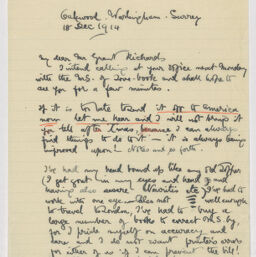 Oakwood. Workingham. Surrey
18 Dec 1914
My dear Mr Grant Richards
I intend calling at your office next Monday
with the M.S. of Love-book and shall hope to
see you for a few minutes.
If it is too late to send it off to America
now let me hear and I will not bring it
you till after Xmas, because I can always
find things to do to it - it is always being
improved upon - notes and so forth.
I've had my head bound up like any old
(I get gout in my eyes and head) and
having also severe I've had to
work with one eye. Does not well enough
to travel to London, I've had to buy a
large number of books to correct M.S. by
for I pride myself on accuracy, and
dare and I do not want printers errors
for either of us if I can prevent the bill!